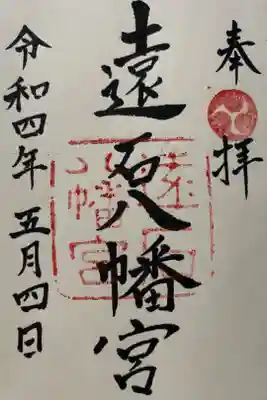 奉拝
遠石八幡宮
令和四年五月四日
遠石
八幡宮